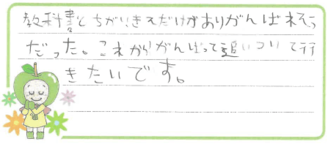 教科書とちがいきえだけがありがんばれそう
だった。これからがんばって追いついて行
きたいです。